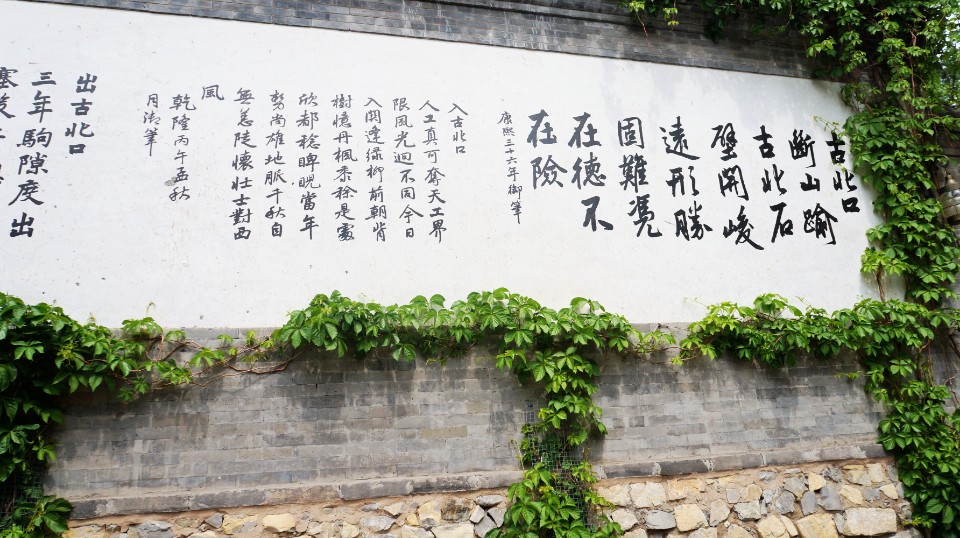 古北口
断山踰
古北石
壁開峻
遠形勝
固難凴
在德不
在險
康熙三十六年御筆
入古北口
人工真可奪天工界
限風光迥不同今日
入関逢緑柳前朝背
樹憶丹楓黍稌是處
欣都稔睥睨當年
勢尚雄地脈千秋自
無恙陡懷壮士對西
風
乾隆丙午孟秋
月御筆
出古北口
三年駒隙度出
塞